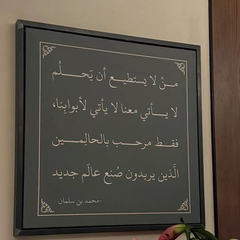 من لا يستطيع أن يَحلُم
لا يأتي معنا لا يأتي لأبوابنا،
فقط مرحب بالحالِمين
الَّذين يريدون صُنع عالَم جديد
-محمد بن سلمان